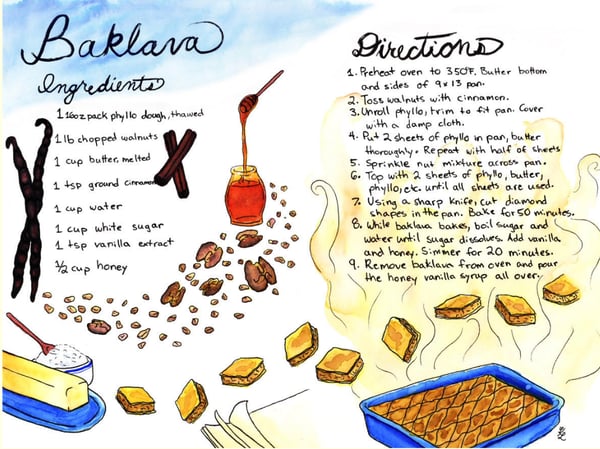 Baklava
Ingredients
1 16oz pack phyllo dough, thawed
1 lb chopped walnuts
1 cup butter, melted
1 tsp ground cinnamon
1 cup water
1 cup white sugar
1 tsp vanilla extract
1/2 cup honey
Directions
1. Preheat oven to 350°F. Butter bottom
and sides of 9x13 pan.
2. Toss walnuts with cinnamon.
3. Unroll phyllo, trim to fit pan. Cover
with a damp cloth.
4. Put 2 sheets of phyllo in pan, butter
thoroughly. Repeat with half of sheets
5. Sprinkle nut mixture across pan.
6. Top with 2 sheets of phyllo, butter,
phyllo, etc. until all sheets are used.
7. Using a sharp knife, cut diamond
shapes in the pan. Bake for 50 minutes.
8. While baklava bakes, boil sugar and
water until sugar dissolves. Add vanilla
and honey. Simmer for 20 minutes.
9. Remove baklava from oven and pour
the honey vanilla syrup all over.